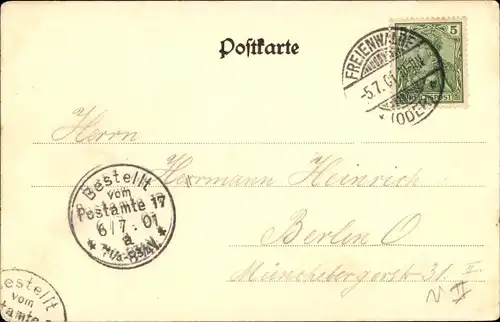 Postkarte
5
FREIENWALDE
-5.7.01
* (ODER) *
Herrn
Herrmann Heinrich
Berlin O
Münchebergerstr. 31 II
II
Bestellt
vom
Postamte 17
6/7.01
a
* 7¼-8¾V. *
Bestellt
vom
Postamte